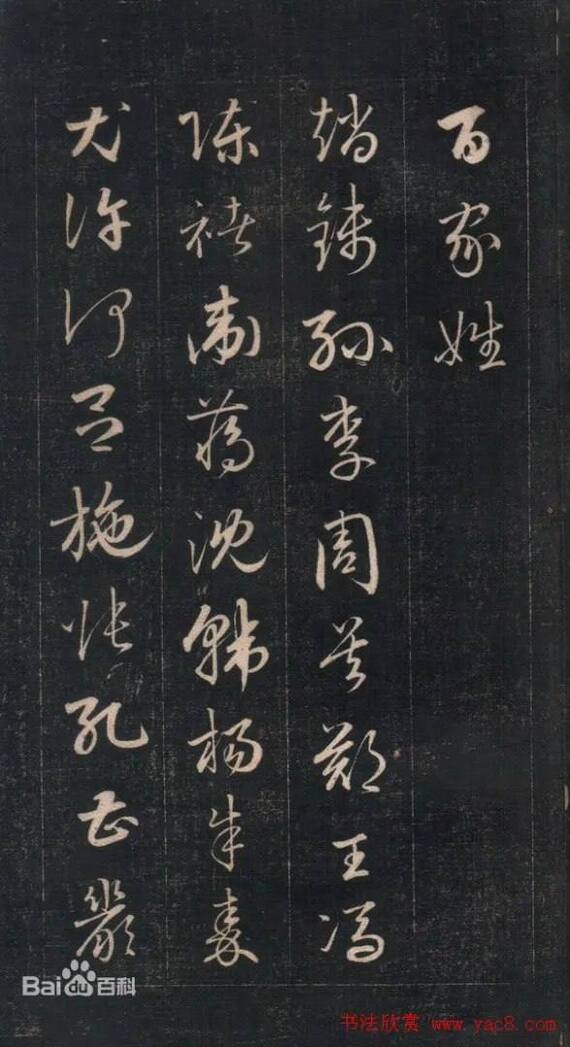 百家姓
趙錢孫李周吳鄭王馮
陳褚衛蔣沈韓楊朱秦
尤許何呂施張孔曹嚴
Bai du 百科
书法欣赏 www.yac8.com